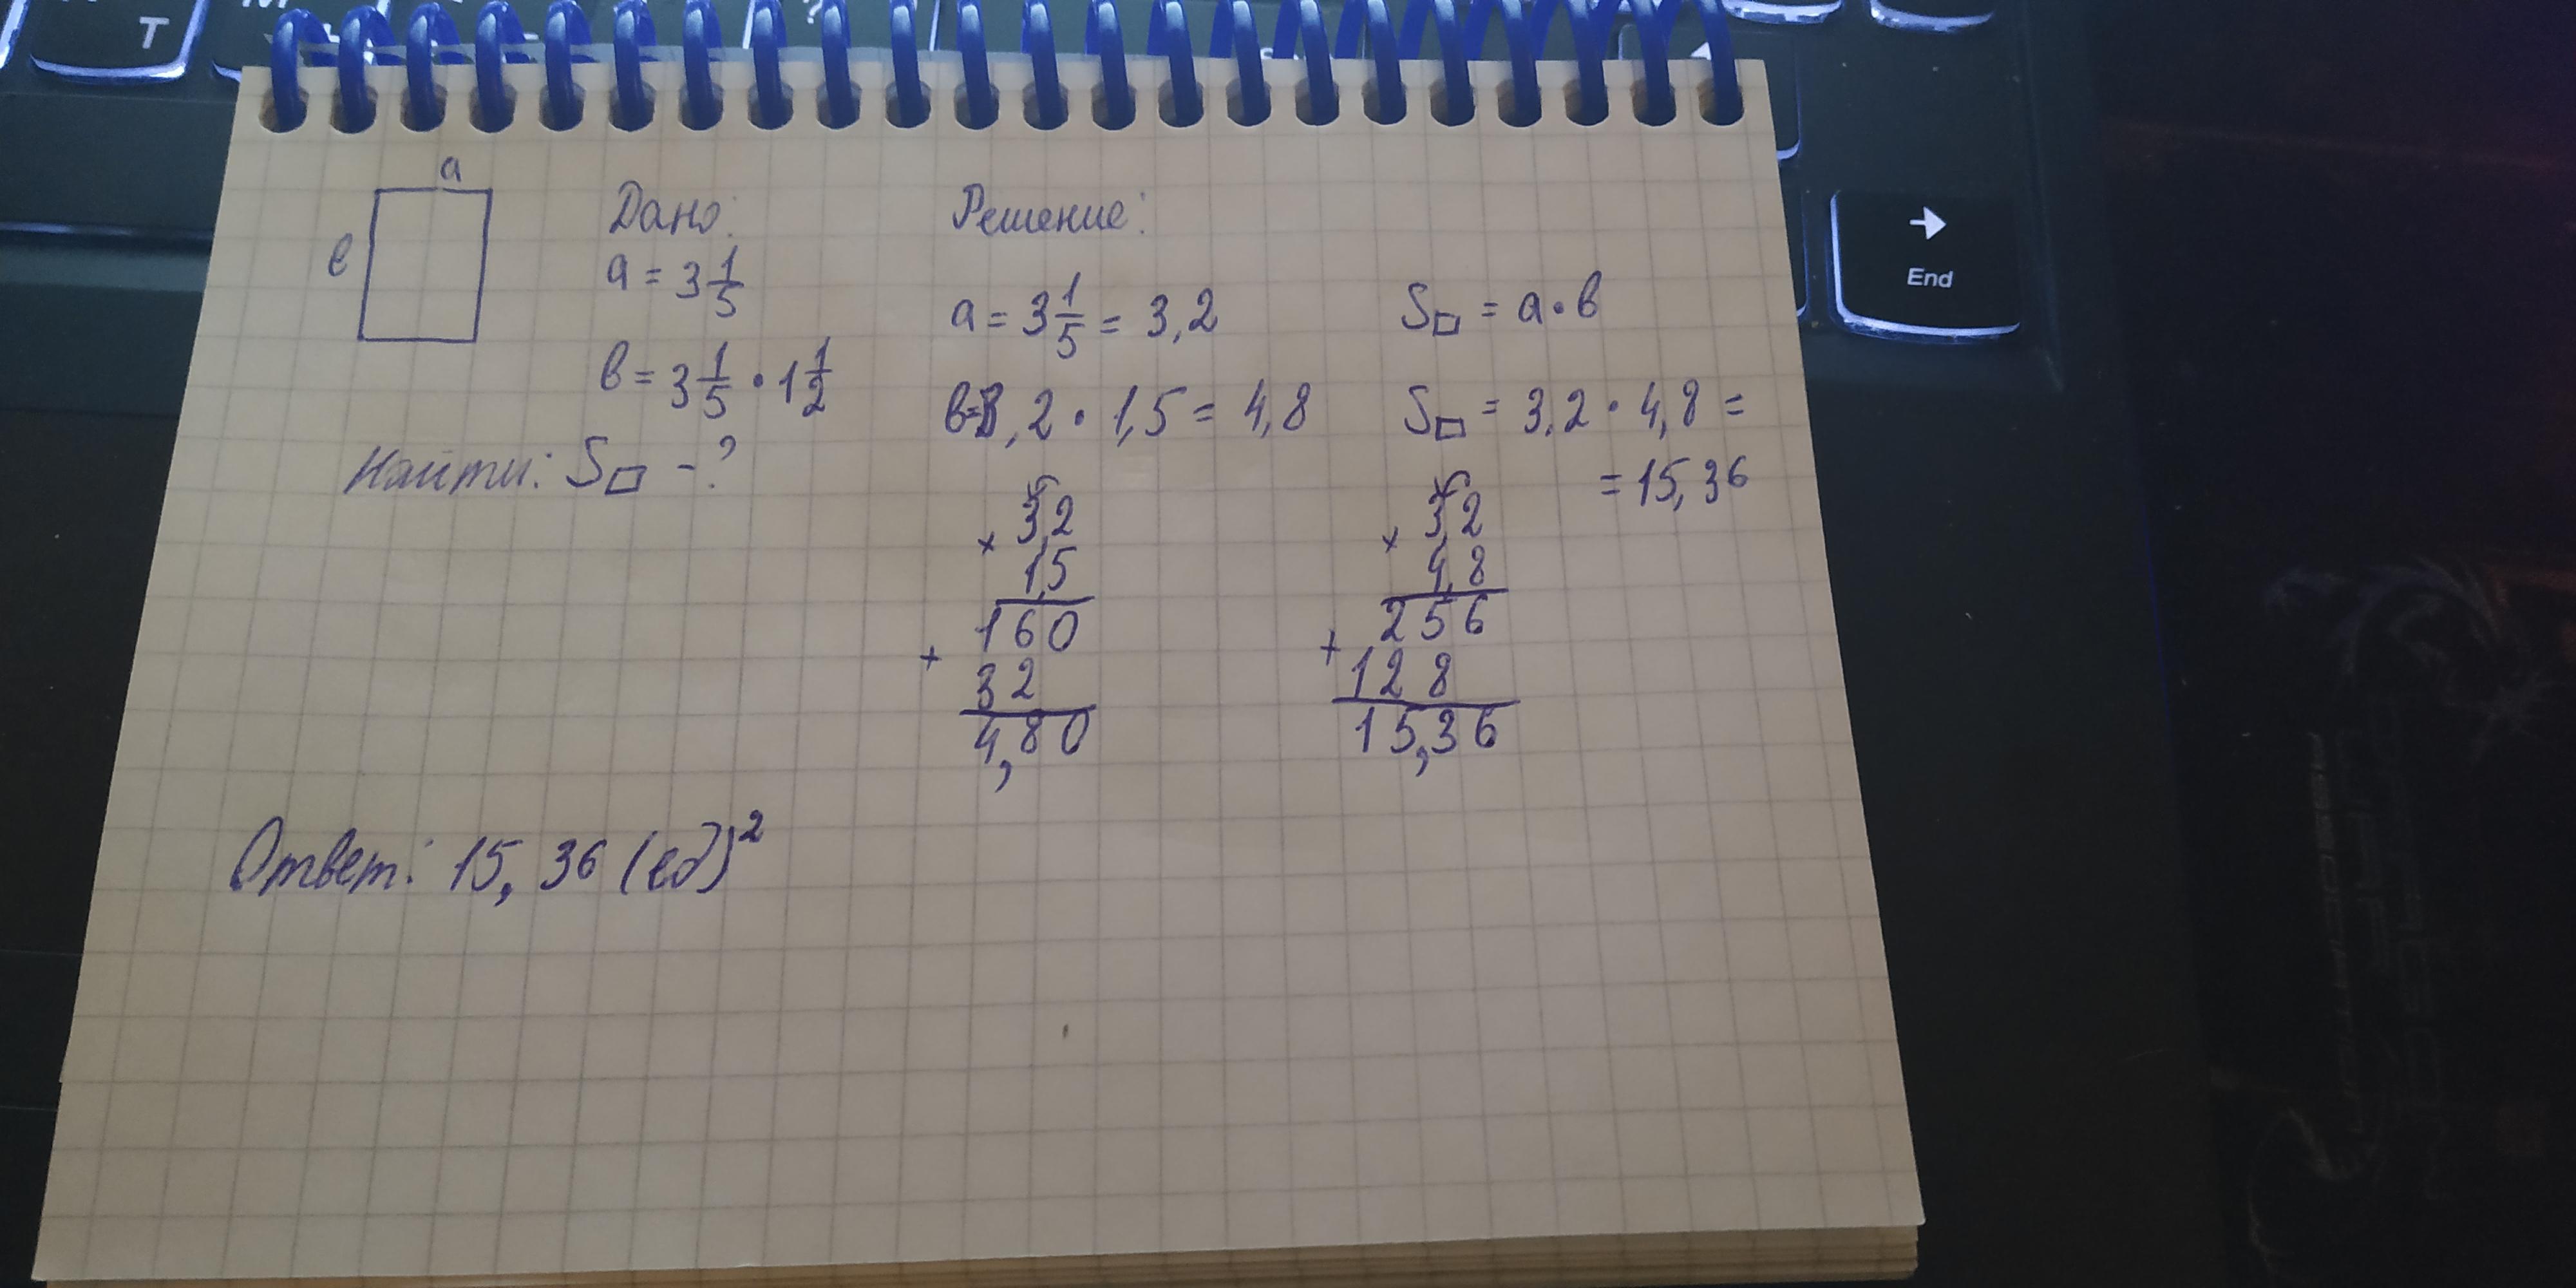 T
?
→
End
a
в
Дано:
a = 3 1/5
в = 3 1/5 · 1 1/2
Найти: S□ - ?
Решение:
a = 3 1/5 = 3,2
в=3,2 · 1,5 = 4,8
3,2
× 1,5
160
+ 32
4,80
S□ = a · в
S□ = 3,2 · 4,8 =
= 15,36
3,2
× 4,8
256
+ 128
15,36
Ответ: 15,36 (ед)²